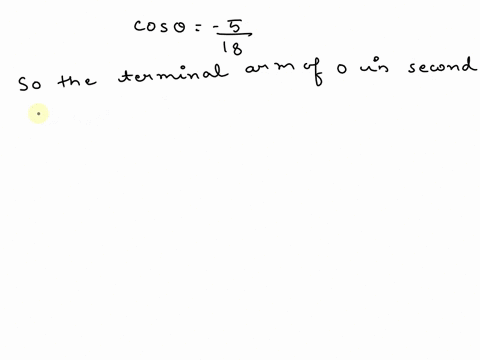 cosθ = -5/18
So the terminal arm of θ in second